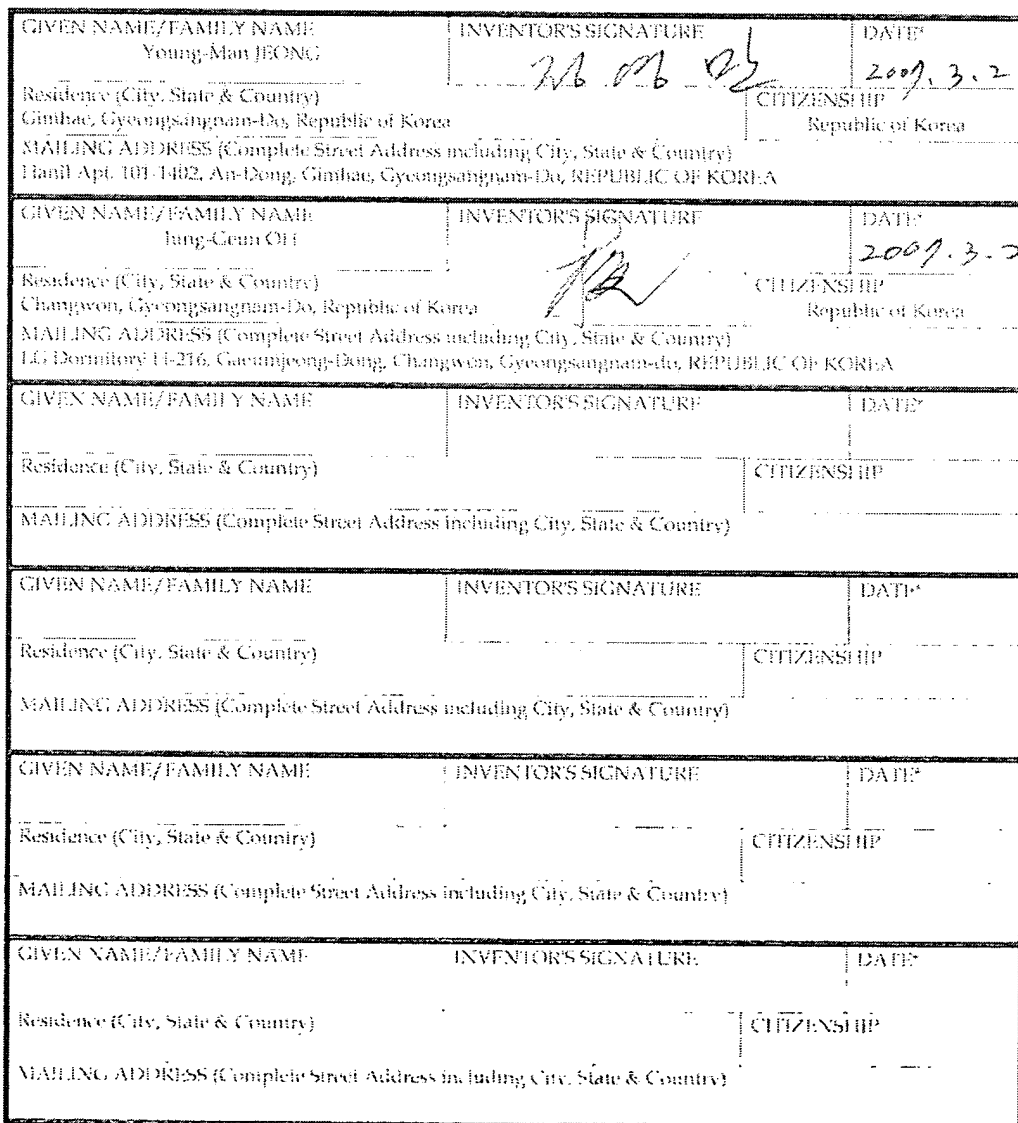 GIVEN NAME/FAMILY NAME INVENTOR'S SIGNATURE DATE*
Young-Man JEONG 정영만 2009.3.2
Residence (City, State & Country) CITIZENSHIP
Gimhae, Gyeongsangnam-Do, Republic of Korea Republic of Korea
MAILING ADDRESS (Complete Street Address including City, State & Country)
Hanil Apt. 101-1402, An-Dong, Gimhae, Gyeongsangnam-Do, REPUBLIC OF KOREA
GIVEN NAME/FAMILY NAME INVENTOR'S SIGNATURE DATE*
Jung-Geun OH 2009.3.2
Residence (City, State & Country) CITIZENSHIP
Changwon, Gyeongsangnam-Do, Republic of Korea Republic of Korea
MAILING ADDRESS (Complete Street Address including City, State & Country)
LG Dormitory H-216, Gaeumjeong-Dong, Changwon, Gyeongsangnam-do, REPUBLIC OF KOREA
GIVEN NAME/FAMILY NAME INVENTOR'S SIGNATURE DATE*
Residence (City, State & Country) CITIZENSHIP
MAILING ADDRESS (Complete Street Address including City, State & Country)
GIVEN NAME/FAMILY NAME INVENTOR'S SIGNATURE DATE*
Residence (City, State & Country) CITIZENSHIP
MAILING ADDRESS (Complete Street Address including City, State & Country)
GIVEN NAME/FAMILY NAME INVENTOR'S SIGNATURE DATE*
Residence (City, State & Country) CITIZENSHIP
MAILING ADDRESS (Complete Street Address including City, State & Country)
GIVEN NAME/FAMILY NAME INVENTOR'S SIGNATURE DATE*
Residence (City, State & Country) CITIZENSHIP
MAILING ADDRESS (Complete Street Address including City, State & Country)